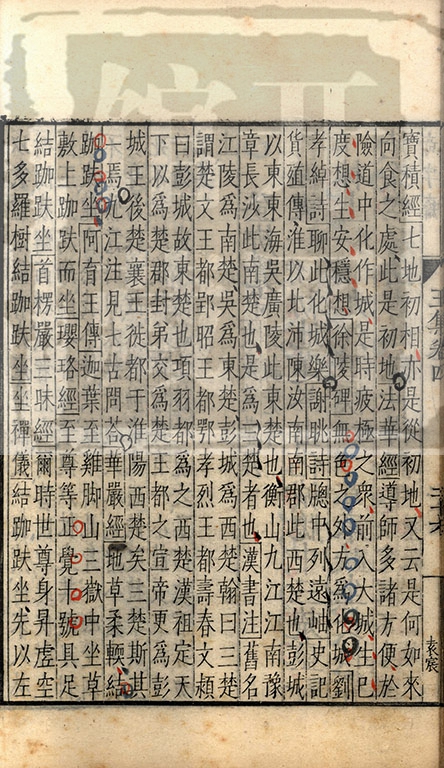 寶積經七地初相亦是從初地又云是何如來
向食之處此是初地法華經導師多諸方便於
險道中化作城是時疲極之眾前入大城生已
度想生安穩想徐陵碑無色之外方為化城劉
孝綽詩聊此化城樂謝眺詩牕中列遠岫史記
貨殖傳淮以北沛陳汝南南郡此西楚也彭城
以東東海吳廣陵此東楚也衡山九江江南豫
章長沙此南楚也是為三楚者也漢書注舊名
江陵為南楚吳為東楚彭城為西楚翰曰三楚
謂楚文王都郢昭王都鄀孝烈王都壽春文頴
曰彭城故東楚也項羽都為之西楚漢祖定天
下以為楚郡封弟交為楚王都之宣帝更為彭
城王後楚襄王徙都于淮陽西楚矣三楚斯其
一焉九江注見七古問荅華嚴經地草柔輭結
跏趺坐阿育王傳迦葉至雞脚山三嶽中坐草
敷上跏趺而坐瓔珞經至尊等正覺十號具足
結跏趺坐首楞嚴三昧經爾時世尊身昇虛空
七多羅樹結跏趺坐坐禪儀結跏趺坐先以左